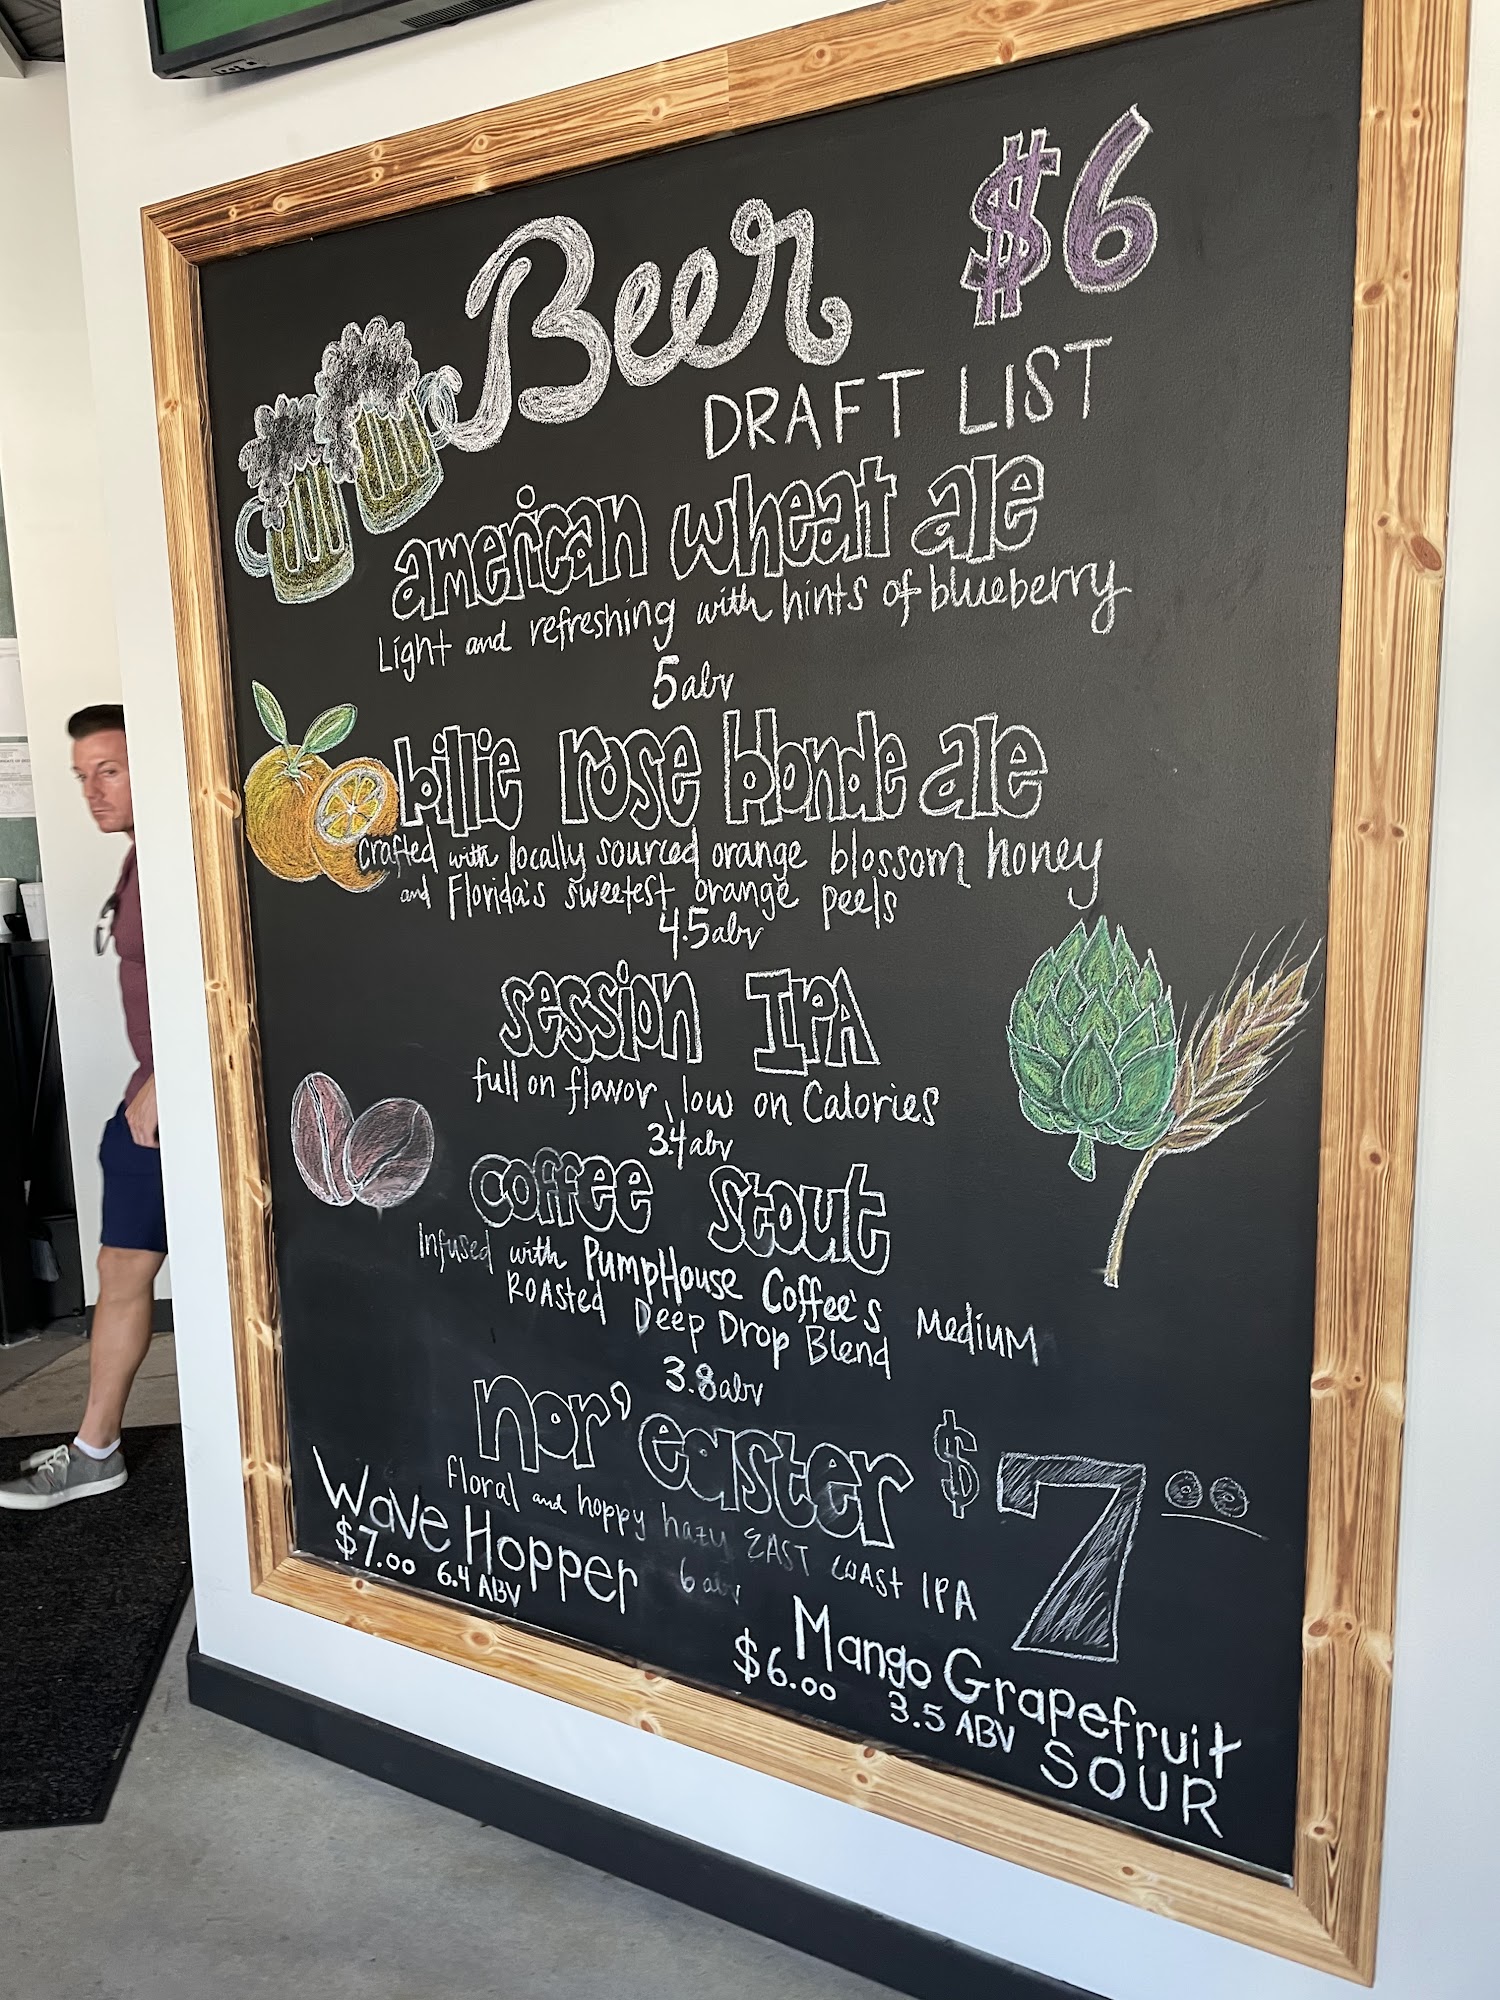 Beer $6
DRAFT LIST
american wheat ale
Light and refreshing with hints of blueberry
5abv
billie rose blonde ale
Crafted with locally sourced orange blossom honey
and Florida's sweetest orange peels
4.5abv
session IPA
full on flavor, low on Calories
3.4abv
coffee stout
Infused with PumpHouse Coffee's Medium
ROAsted Deep Drop Blend
3.8abv
nor'easter $7.00
floral and hoppy hazy EAST COAST IPA
6abv
Wave Hopper
$7.00 6.4 ABV
Mango Grapefruit
SOUR
$6.00 3.5 ABV